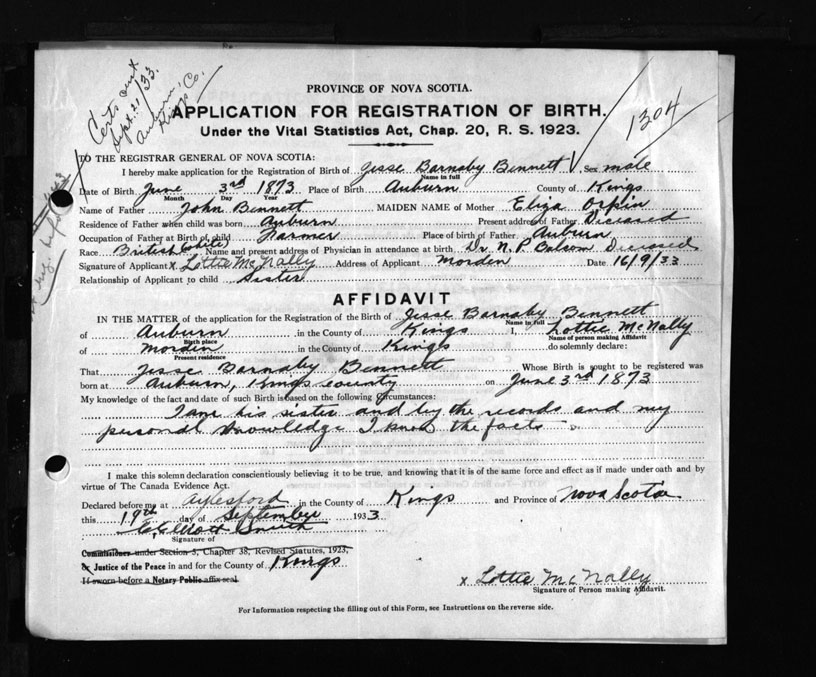 Certs sent
Sept. 21/33.
Auburn,
Kings Co.
1304
PROVINCE OF NOVA SCOTIA.
APPLICATION FOR REGISTRATION OF BIRTH.
Under the Vital Statistics Act, Chap. 20, R. S. 1923.
TO THE REGISTRAR GENERAL OF NOVA SCOTIA:
I hereby make application for the Registration of Birth of Jesse Barnaby Bennett Sex male
Name in full
Date of Birth June 3rd 1873 Place of Birth Auburn County of Kings
Month Day Year
Name of Father John Bennett MAIDEN NAME of Mother Eliza Orpin
Residence of Father when child was born Auburn Present address of Father Diceased
Occupation of Father at Birth of child Farmer Place of birth of Father Auburn
Race British White Name and present address of Physician in attendance at birth Dr. N. P. Balsom Diceased
Signature of Applicant x Lottie McNally Address of Applicant Morden Date 16/9/33
Relationship of Applicant to child Sister
AFFIDAVIT
IN THE MATTER of the application for the Registration of the Birth of Jesse Barnaby Bennett
Name in full
of Auburn in the County of Kings I, Lottie McNally
Birth place Name of person making Affidavit
of Morden in the County of Kings do solemnly declare:
Present residence
That Jesse Barnaby Bennett Whose Birth is sought to be registered was
born at Auburn, Kings county on June 3rd 1873
My knowledge of the fact and date of such Birth is based on the following circumstances:
I am his sister and by the records and my
personal knowledge I know the facts.
I make this solemn declaration conscientiously believing it to be true, and knowing that it is of the same force and effect as if made under oath and by
virtue of The Canada Evidence Act.
Declared before me at Aylesford in the County of Kings and Province of Nova Scotia
this 19th day of September 1933
Elliott Smith
Signature of
Commissioner under Section 5, Chapter 38, Revised Statutes, 1923,
Or Justice of the Peace in and for the County of Kings
If sworn before a Notary Public affix seal
x Lottie McNally
Signature of Person making Affidavit.
For Information respecting the filling out of this Form, see Instructions on the reverse side.